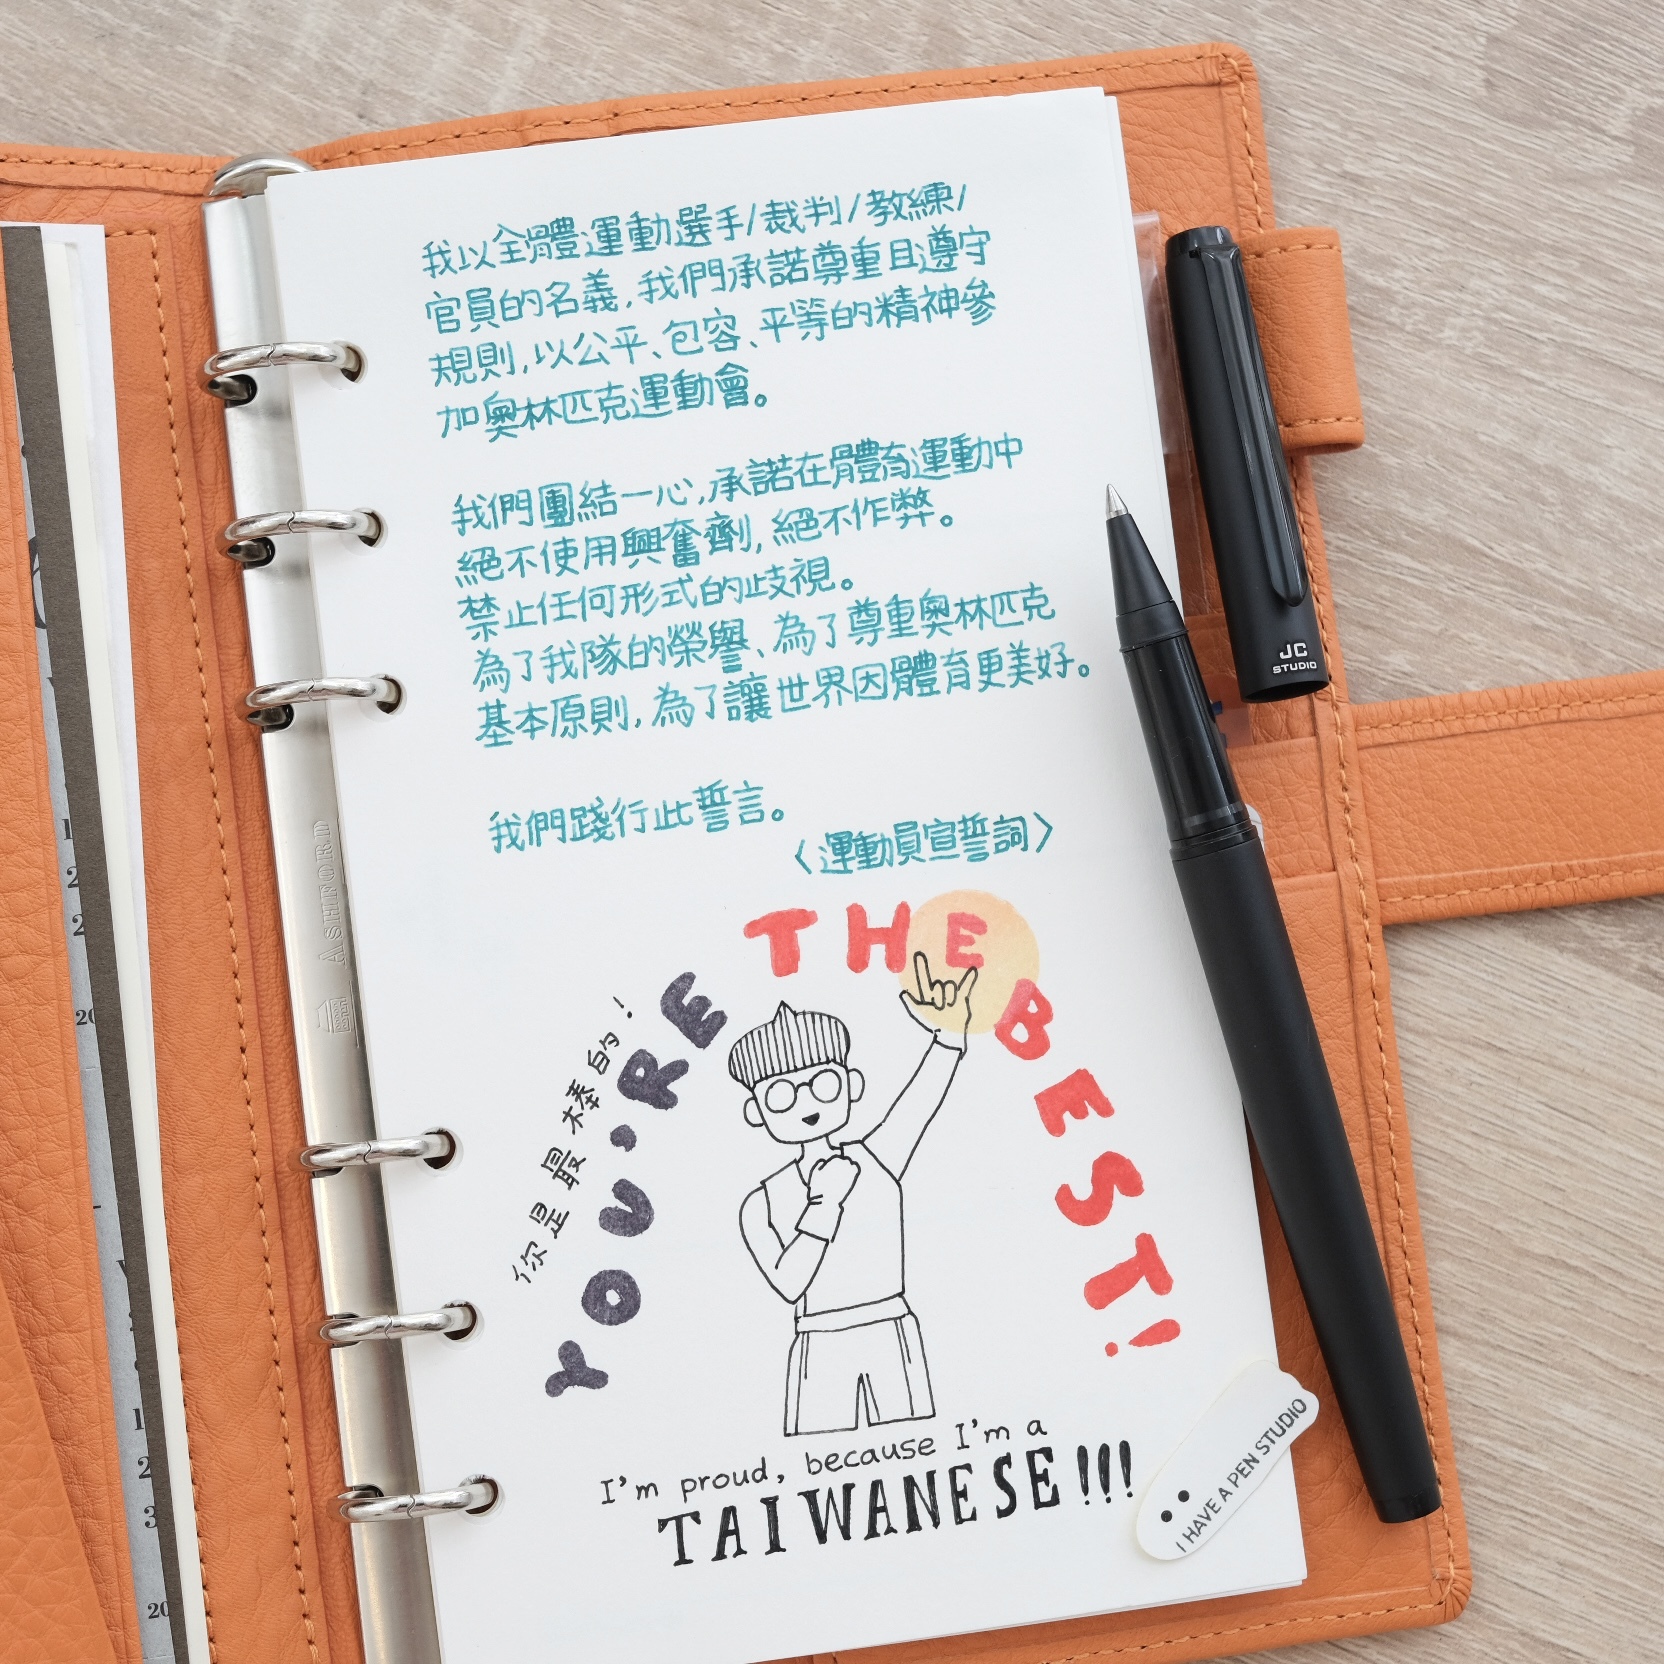 我以全體運動選手/裁判/教練/
官員的名義,我們承諾尊重且遵守
規則,以公平、包容、平等的精神參
加奧林匹克運動會。
我們團結一心,承諾在體育運動中
絕不使用興奮劑,絕不作弊。
禁止任何形式的歧視。
為了我隊的榮譽、為了尊重奧林匹克
基本原則,為了讓世界因體育更美好。
我們踐行此誓言。
〈運動員宣誓詞〉
YOU'RE THE BEST!
你是最棒的!
I'm proud, because I'm a
TAIWANESE!!!
JC
STUDIO
I HAVE A PEN STUDIO
ASHFORD